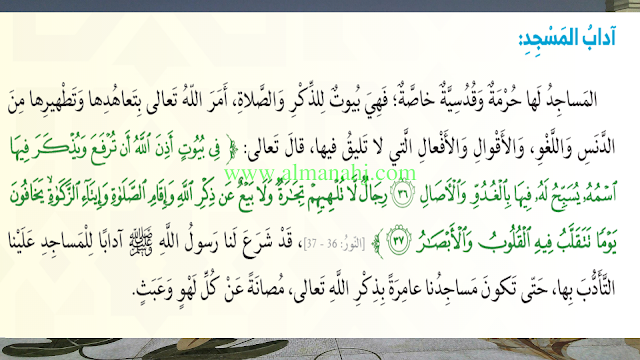 آدابُ المَسْجِدِ:
المَساجِدُ لَها حُرْمَةٌ وَقُدُسِيَّةٌ خاصَّةٌ؛ فَهِيَ بُيوتٌ لِلذِّكْرِ وَالصَّلاةِ، أَمَرَ اللّهُ تَعالى بِتَعاهُدِها وَتَطْهيرِها مِنَ
الدَّنَسِ وَاللَّغْوِ، وَالأَقْوالِ وَالأَفْعالِ الَّتي لا تَليقُ فيها، قالَ تَعالى: ﴿ فِي بُيُوتٍ أَذِنَ ٱللَّهُ أَن تُرْفَعَ وَيُذْكَرَ فِيهَا
www.almanahj.com
ٱسْمُهُۥ يُسَبِّحُ لَهُۥ فِيهَا بِٱلْغُدُوِّ وَٱلْآصَالِ ۝٣٦ رِجَالٌ لَّا تُلْهِيهِمْ تِجَٰرَةٌ وَلَا بَيْعٌ عَن ذِكْرِ ٱللَّهِ وَإِقَامِ ٱلصَّلَوٰةِ وَإِيتَآءِ ٱلزَّكَوٰةِ يَخَافُونَ
يَوْمًا تَتَقَلَّبُ فِيهِ ٱلْقُلُوبُ وَٱلْأَبْصَٰرُ ۝٣٧ ﴾ [النّور: 36 - 37]، قَدْ شَرَعَ لَنا رَسولُ اللَّهِ ﷺ آدابًا لِلْمَساجِدِ عَلَيْنا
التَّأَدُّبَ بِها، حَتّى تَكونَ مَساجِدُنا عامِرَةً بِذِكْرِ اللَّهِ تَعالى، مُصانَةً عَنْ كُلِّ لَهْوٍ وَعَبَثٍ.